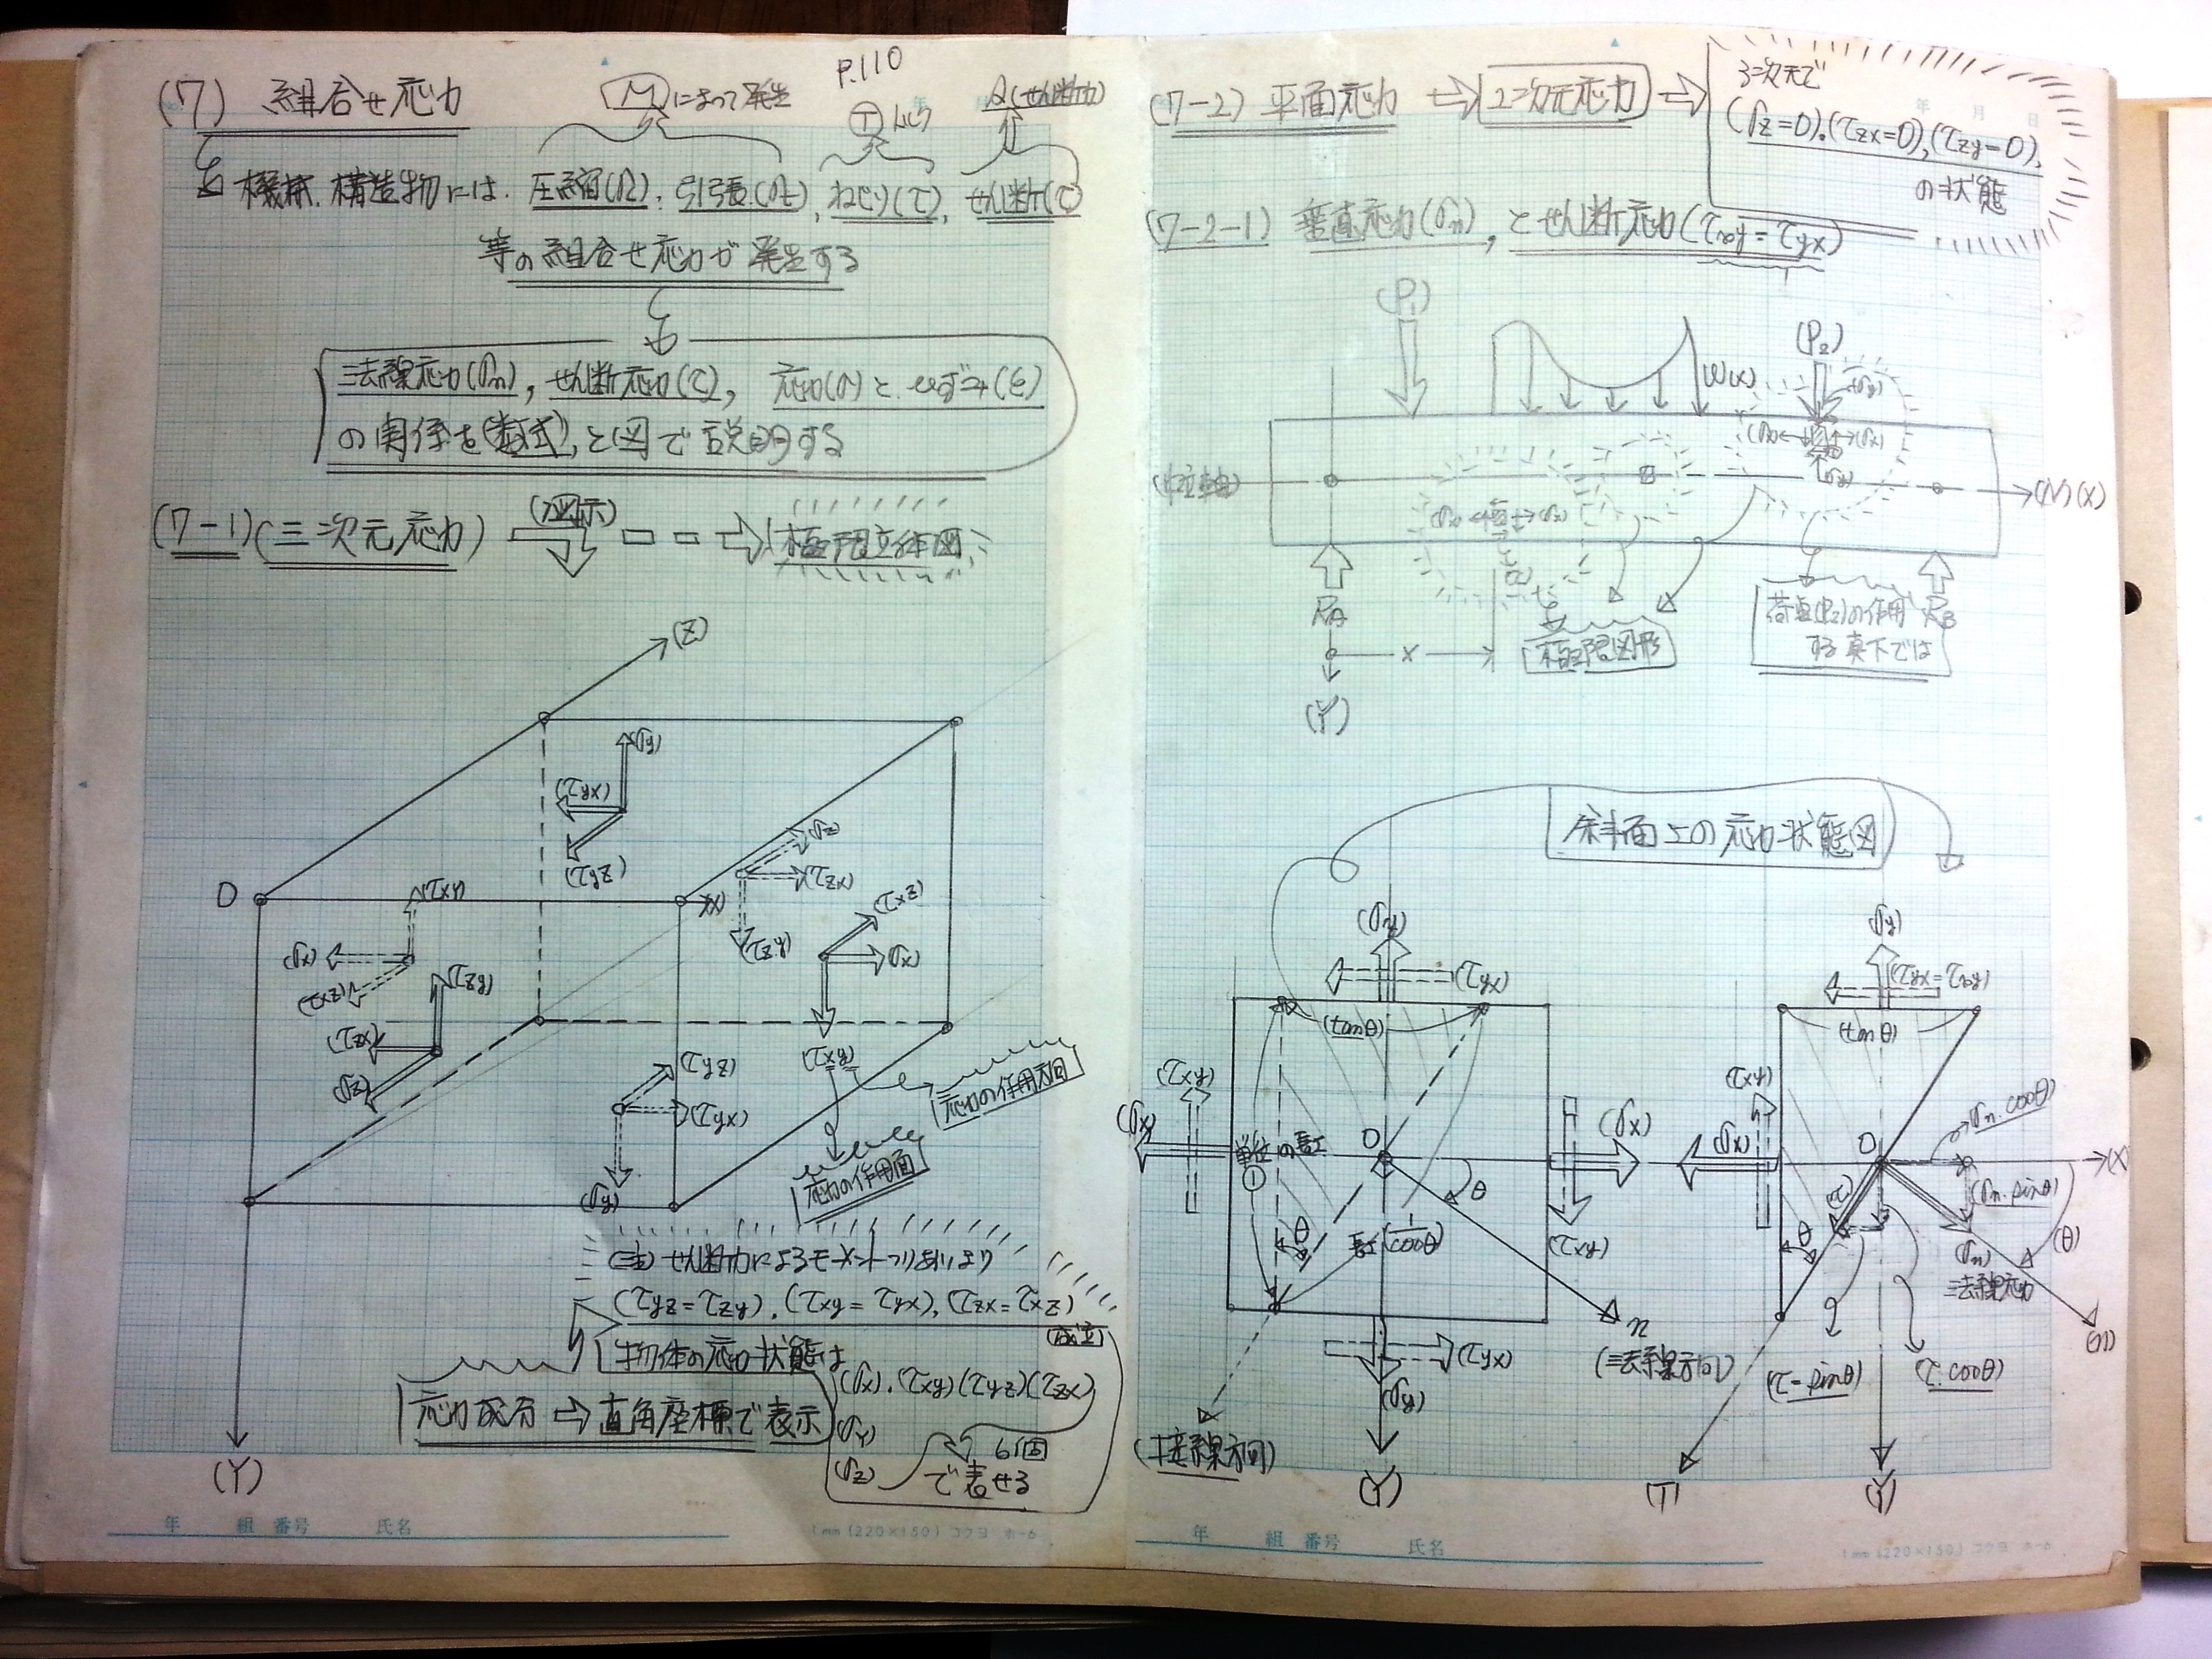 P.110
(7) 組合せ応力
(M)によって発生
(T)トルク
Q(せん断力)
機械、構造物には、圧縮(σc)、引張(σt)、ねじり(τ)、せん断(τ)
等の組合せ応力が発生する
法線応力(σn)，せん断応力(τ)，応力(σ)とひずみ(ε)
の関係を(数式)，と図で説明する
(7-1)(三次元応力)
(図示)
極限立体図
(Z)
(σy)
(τyx)
(τyz)
(σz)
(τzx)
(τzy)
O
(X)
(τxy)
(σx)
(τxz)
(τxz)
(σx)
(τxy)
(τzy)
(τzx)
(σz)
(τyz)
(τyx)
(σy)
応力の作用方向
応力の作用面
(Y)
(注) せん断力によるモーメントつりあいより
(τyz=τzy)，(τxy=τyx)，(τzx=τxz)
(成立)
物体の応力状態は
応力成分⇒直角座標で表示
(σx)，(τxy)(τyz)(τzx)
(σY)
(σz)
6個
で表せる
年 組 番号 氏名
1mm (220×150) コクヨ ホ-6
(7-2) 平面応力
2次元応力
3次元で
(σz=0)，(τzx=0)，(τzy=0)，
の状態
(7-2-1) 垂直応力(σn)，とせん断応力(τxy=τyx)
(P1)
W(x)
(P2)
(σy)
(σx)
(σx)
(σy)
(中立軸)
(N)(X)
(σx)
(σx)
RA
RB
x
(Y)
極限図形
荷重(P2)の作用
する真下では
斜面上の応力状態図
(σy)
(τyx)
(tanθ)
(τxy)
(σx)
単位の長さ
1
O
θ
θ
長さ(1/cosθ)
(σx)
(τxy)
n
(法線方向)
(τyx)
(σy)
(接線方向)
(Y)
(σy)
(τyx=τxy)
(tanθ)
(τxy)
(σx)
O
(σn・cosθ)
(X)
(σn・sinθ)
(τ)
θ
(θ)
(σn)
法線応力
(n)
(τ・sinθ)
(τ・cosθ)
(T)
(Y)
年 組 番号 氏名
1mm (220×150) コクヨ ホ-6